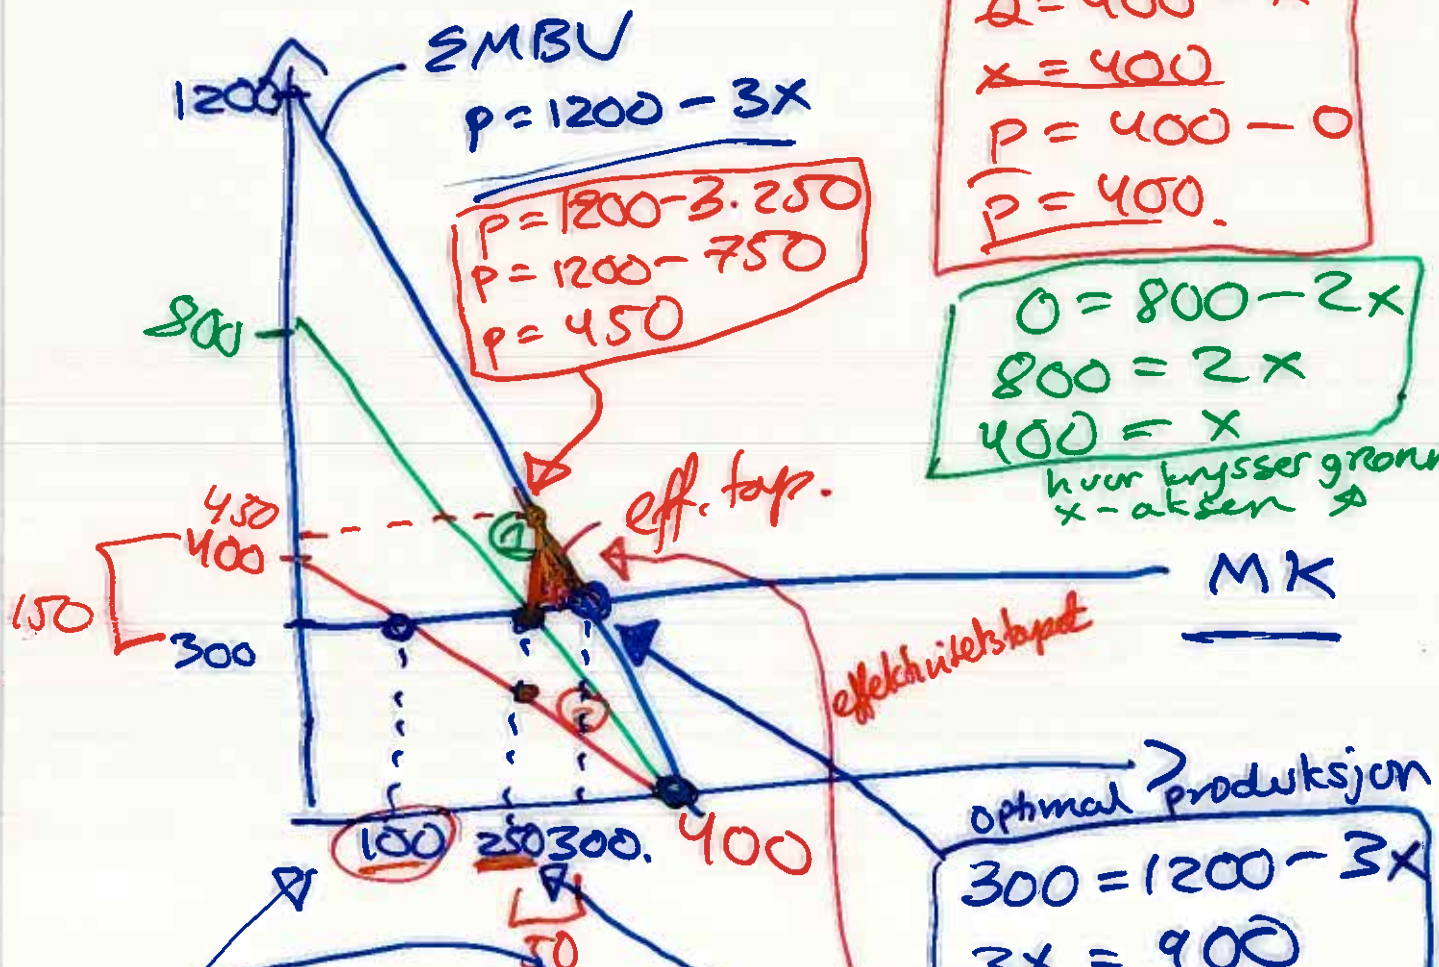 ΣMBV
1200
p = 1200 - 3x
p = 1200 - 3·250
p = 1200 - 750
p = 450
x = 400
p = 400 - 0
p = 400.
0 = 800 - 2x
800 = 2x
400 = x
hvor krysser grønn
x-aksen
800
450
400
150
300
1
eff. tap.
MK
effektivitetstapet
2
100 250 300. 400
50
optimal produksjon
300 = 1200 - 3x
3x = 900